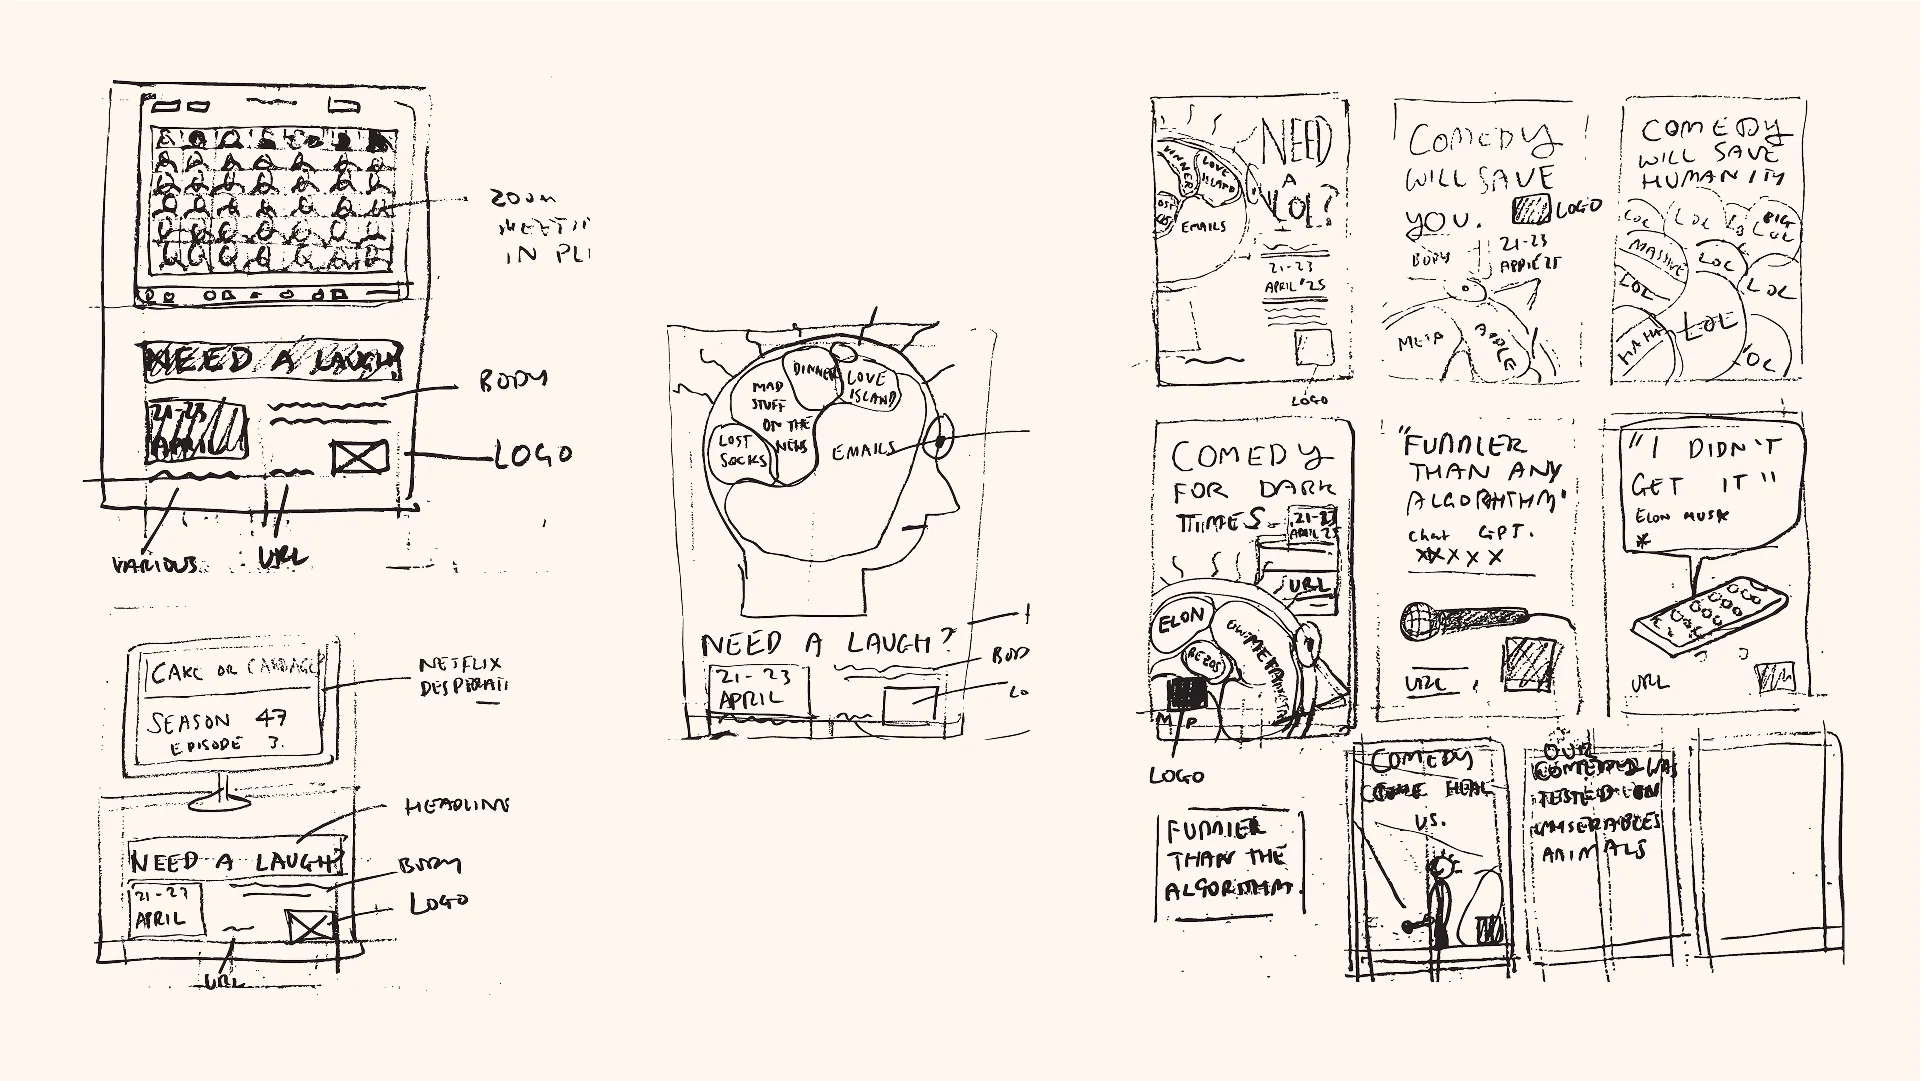 ZOOM
IN
NEED A LAUGH?
21-23
APRIL
BODY
LOGO
VARIOUS
URL
CAKE OR CABBAGE?
SEASON 47
EPISODE 3.
NETFLIX
HEADLINE
NEED A LAUGH?
21-23
APRIL
BODY
LOGO
URL
DINNER
LOVE
ISLAND
MAD
STUFF
ON THE
NEWS
LOST
SOCKS
EMAILS
NEED A LAUGH?
21-23
APRIL
NEED
A
LOL?
DINNER
LOVE
ISLAND
EMAILS
21-23
APRIL '25
LOGO
COMEDY
WILL SAVE
YOU.
LOGO
BODY
21-23
META
APPLE
COMEDY
WILL SAVE
HUMANITY
LOL
LOL
BIG
LOL
MASSIVE
LOL
LOL
LOL
HAHA
LOL
LOL
COMEDY
FOR DARK
TIMES.
21-23
APRIL 25
URL
ELON
BEZOS
LOGO
"FUNNIER
THAN ANY
ALGORITHM'
Chat GPT.
XXXXX
URL
"I DIDN'T
GET IT"
ELON MUSK
*
URL
FUNNIER
THAN THE
ALGORITHM.
COMEDY
COME HEAL
US.
OUR
COMEDY WAS
TESTED ON
MISERABLES
ANIMALS